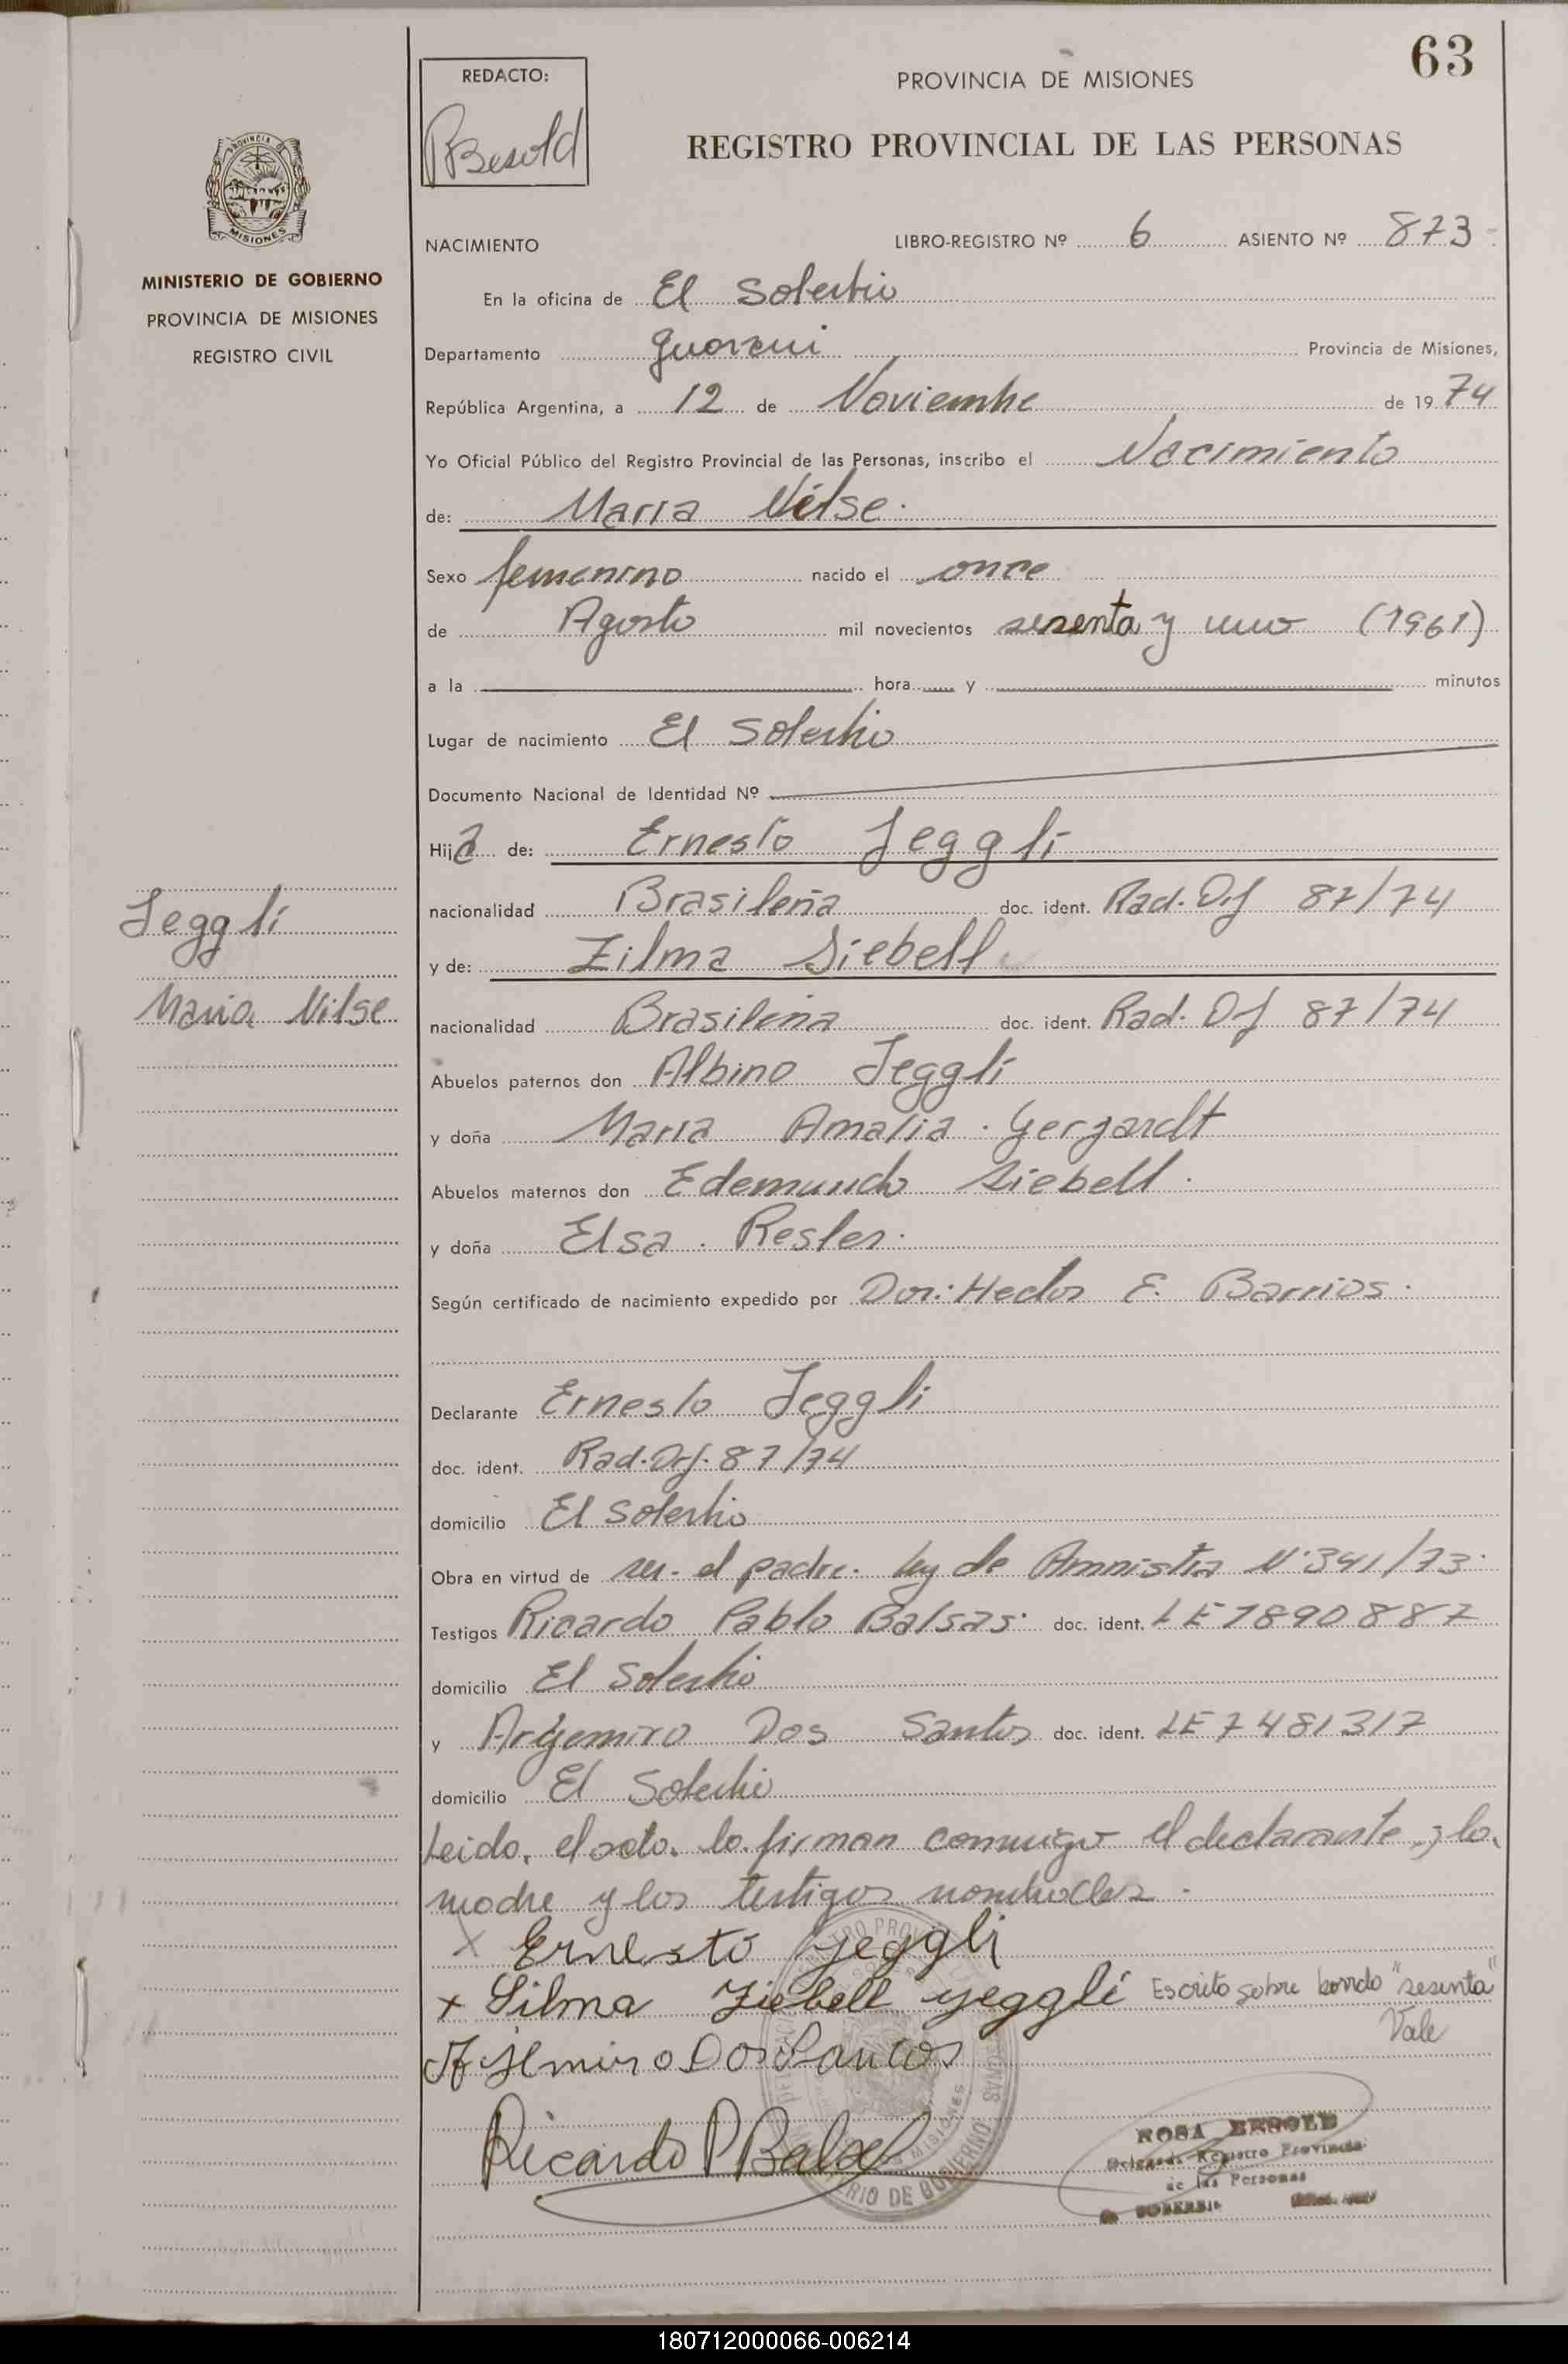 63
REDACTO:
RBesold
PROVINCIA DE MISIONES
REGISTRO PROVINCIAL DE LAS PERSONAS
PROVINCIA DE
MISIONES
MINISTERIO DE GOBIERNO
PROVINCIA DE MISIONES
REGISTRO CIVIL
NACIMIENTO
LIBRO-REGISTRO Nº 6 ASIENTO Nº 873
En la oficina de El Soberbio
Departamento Guarani Provincia de Misiones,
República Argentina, a 12 de Noviembre de 19 74
Yo Oficial Público del Registro Provincial de las Personas, inscribo el Nacimiento
de: Maria Nilse.
Sexo femenino nacido el once
de Agosto mil novecientos sesenta y uno (1961)
a la hora y minutos
Lugar de nacimiento El Soberbio
Documento Nacional de Identidad Nº
Hija de: Ernesto Jeggli
nacionalidad Brasileña doc. ident. Rad. Def 87/74
y de: Zilma Siebell
nacionalidad Brasileña doc. ident. Rad. Def 87/74
Jeggli
Maria Nilse
Abuelos paternos don Albino Jeggli
y doña Maria Amalia. Gerzardt
Abuelos maternos don Edemundo Siebell.
y doña Elsa. Resler.
Según certificado de nacimiento expedido por Dor: Hector E. Barrios.
Declarante Ernesto Jeggli
doc. ident. Rad. Def. 87/74
domicilio El Soberbio
Obra en virtud de ser- el padre. ley de Amnistia Nº 341/73.
Testigos Ricardo Pablo Balsas. doc. ident. LE 7890887
domicilio El Soberbio
y Argemiro Dos Santos doc. ident. LE 7481317
domicilio El Soberbio
Leido, el acto. lo. firman conmigo el declarante, y la.
madre y los testigos nombrados.
x Ernesto Jeggli
+ Silma Ziebell yeggli Escrito sobre borrado "sesenta"
Vale
Argemiro Dos Santos
Ricardo P Balsas
MISIONES
MINISTERIO DE GOBIERNO
ROSA BESOLD
Delegada Registro Provincial
de las Personas
EL SOBERBIO
180712000066-006214